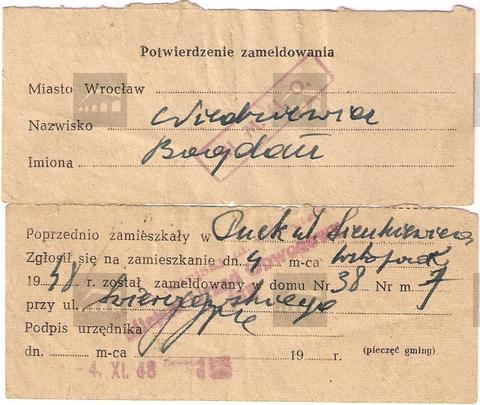 Potwierdzenie zameldowania
Miasto Wrocław
Nazwisko
Imiona Bogdan
Poprzednio zamieszkały w Puck ul. Sienkiewicza
Zgłosił się na zamieszkanie dn. 4 m-ca listopada
1948 r. został zameldowany w domu Nr 38 Nr m. 7
przy ul. Świerczewskiego
Podpis urzędnika
dn. m-ca 19 r. (pieczęć gminy)
4. XI. 48